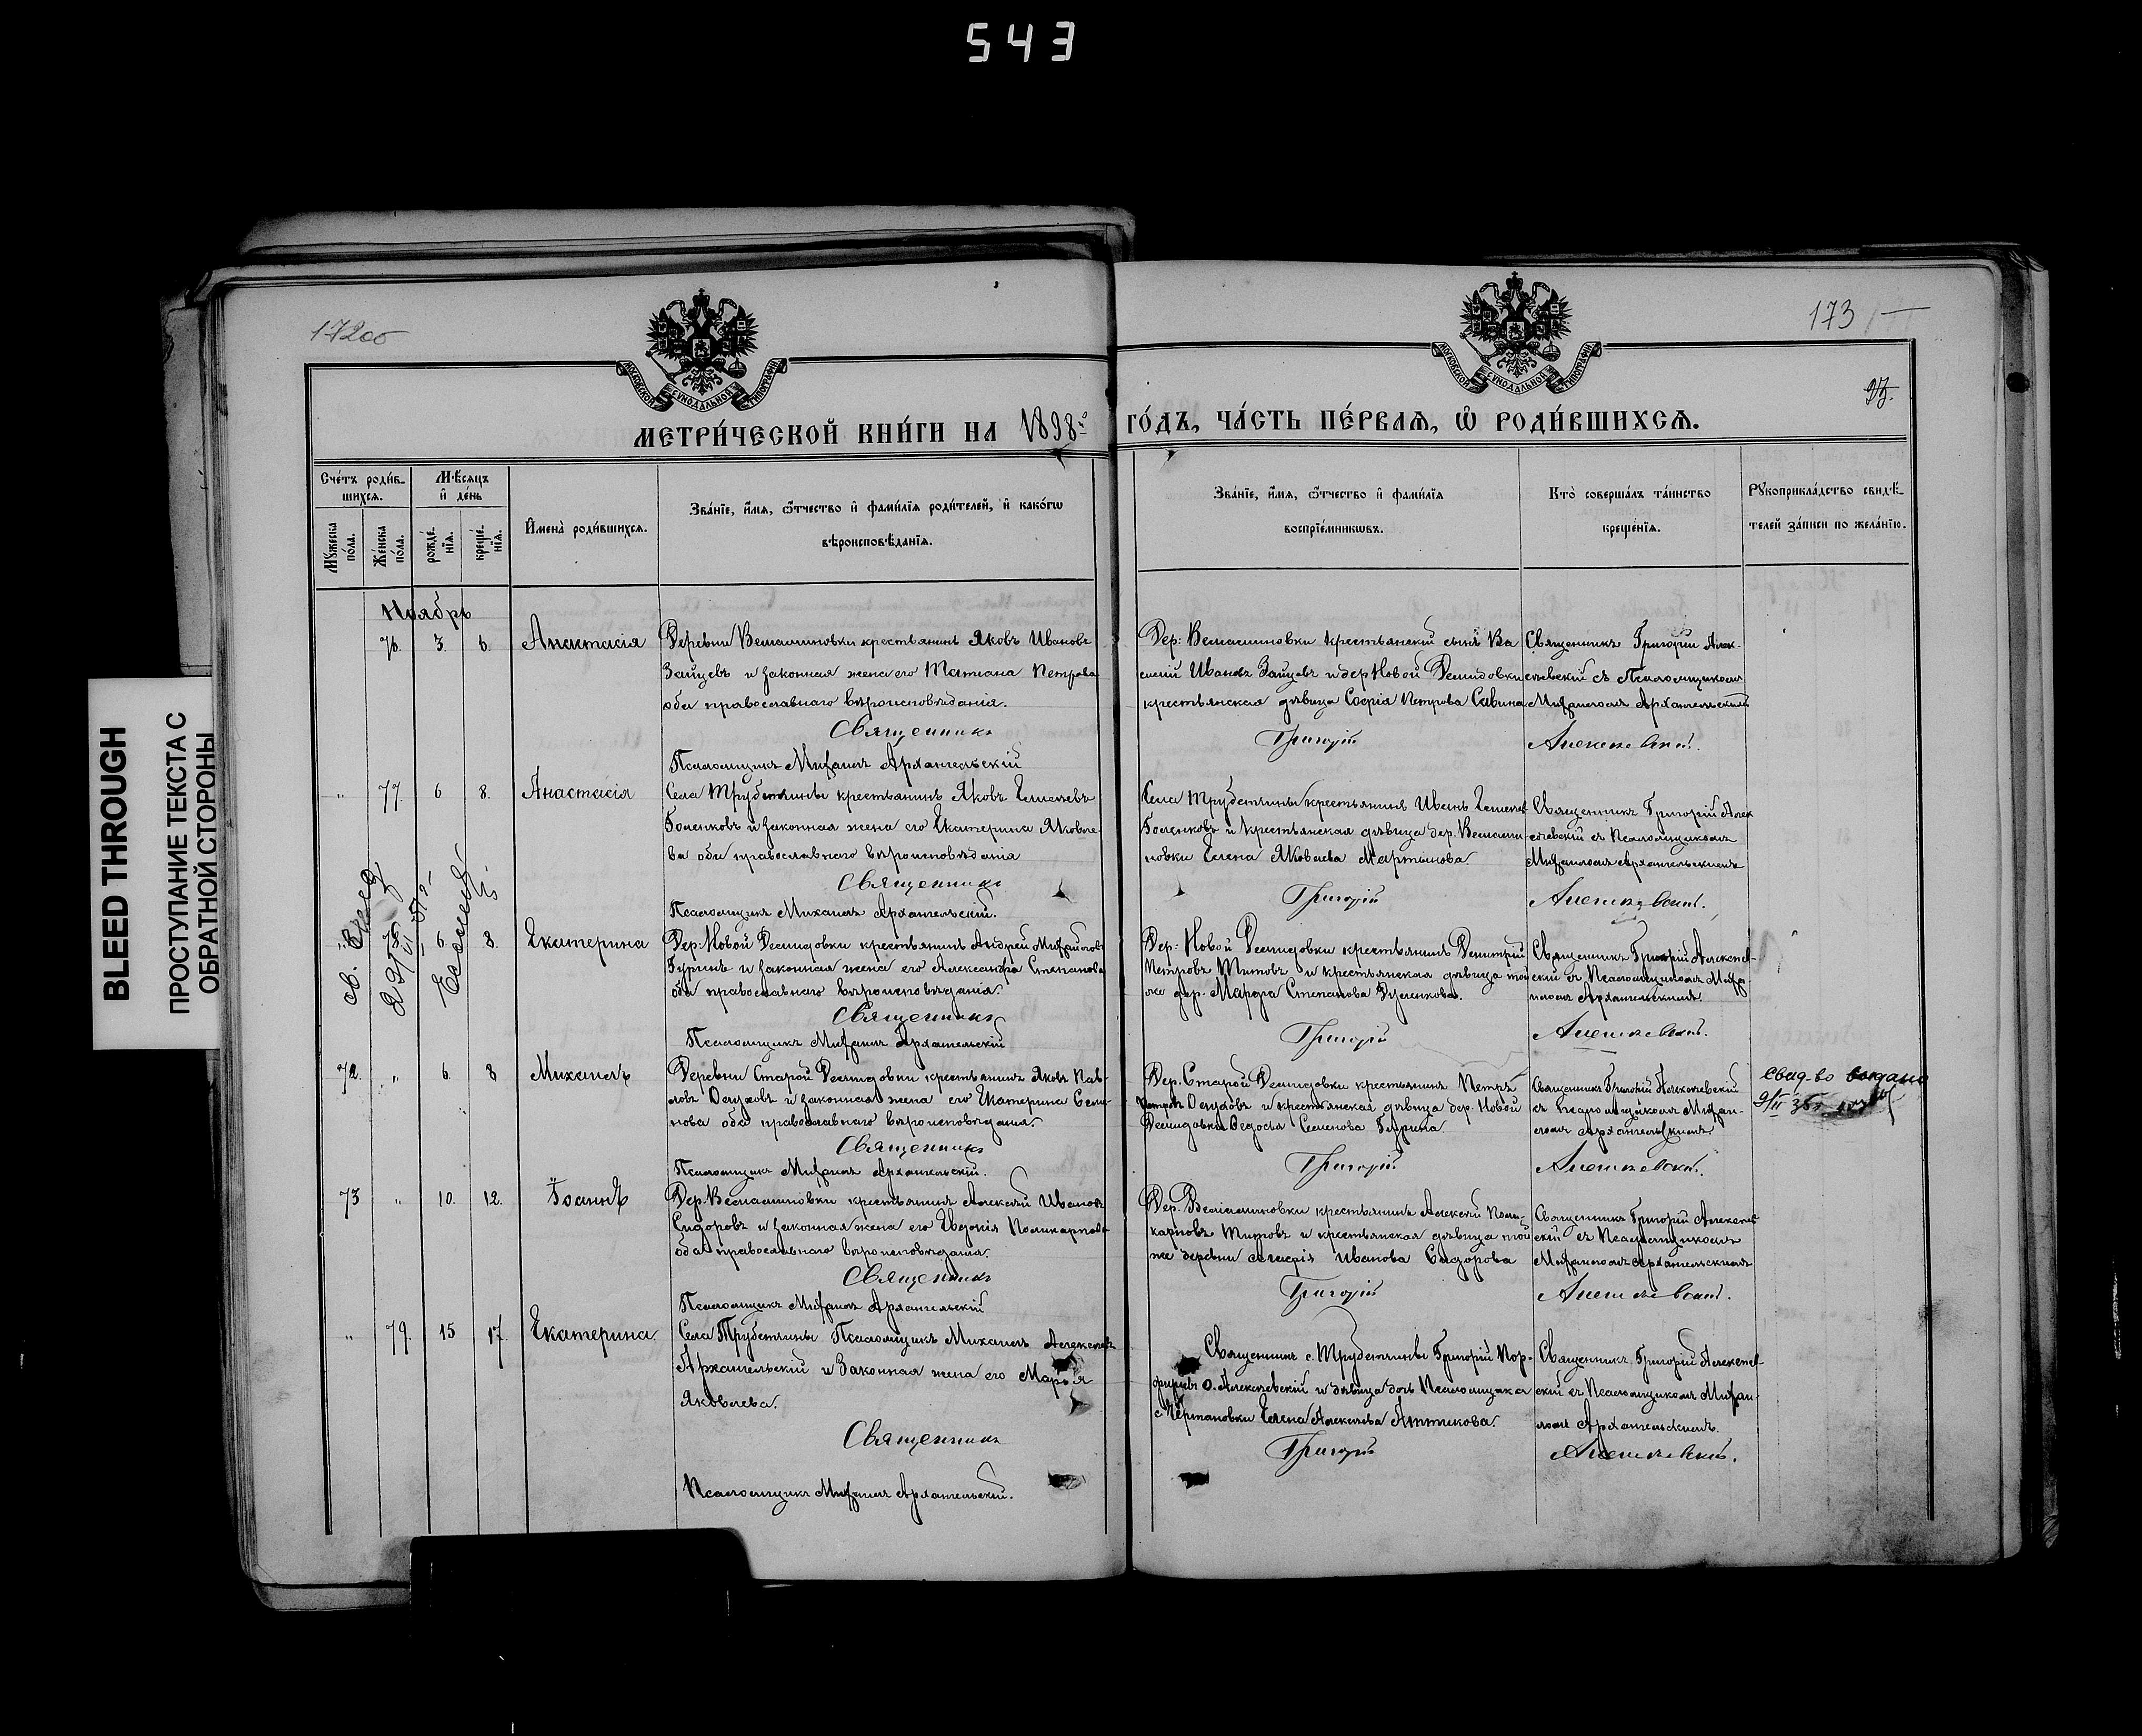 543
BLEED THROUGH
ПРОСТУПАНИЕ ТЕКСТА С
ОБРАТНОЙ СТОРОНЫ
172об
173
МОСКОВСКОЙ СѴНОДАЛЬНОЙ ТИПОГРАФІИ
МОСКОВСКОЙ СѴНОДАЛЬНОЙ ТИПОГРАФІИ
МЕТРИ́ЧЕСКОЙ КНИ́ГИ НА 1898 ГО́ДЪ, ЧА́СТЬ ПЕ́РВАѦ, Ѡ҆ РОДИ́ВШИХСѦ.
Сче́тъ роди́в-
шихсѧ.
Мꙋ́жеска
по́ла.
Же́нска
по́ла.
Мѣ́сѧцъ
и҆ де́нь
рожде́-
нїѧ.
креще́-
нїѧ.
И҆мена̀ роди́вшихсѧ.
Зва́нїе, и҆́мѧ, ѻ҆́тчество и҆ фами́лїѧ роди́телей, и҆ како́гѡ
вѣроисповѣ́данїѧ.
Зва́нїе, и҆́мѧ, ѻ҆́тчество и҆ фами́лїѧ
воспрїе́мникѡвъ.
Кто̀ соверша́лъ та́инство
креще́нїѧ.
Рꙋкоприкла́дство свидѣ́-
телей за́писи по жела́нїю.
Ноябрь
76. 3. 6. Анастасія
Деревни Веніаминовки крестьянинъ Яковъ Ивановъ
Зайцевъ и законная жена его Татіана Петрова
оба православнаго вѣроисповѣданія.
Священникъ
Псаломщикъ Михаилъ Архангельскій
Дер: Веніаминовки крестьянскій сынъ Ва
силій Ивановъ Зайцевъ и дер Новой Демидовки
крестьянская дѣвица Софія Петрова Савина
Григорій
Священникъ Григорій Алек-
сѣевскій съ Псаломщикомъ
Михаиломъ Архангельскимъ
Алексѣевскій.
" 77. 6 8. Анастасія
Села Трубетчины крестьянинъ Яковъ
и законная жена его Екатерина Яковле-
ва оба православнаго вѣроисповѣданія
Священникъ
Псаломщикъ Михаилъ Архангельскій.
Села Трубетчины крестьянинъ Иванъ
и крестьянская дѣвица дер. Веніами-
новки Елена Яковлева Мартынова.
Григорій
Священникъ Григорій Алек
сѣевскій съ Псаломщикомъ
Михаиломъ Архангельскимъ
Алексѣевскій.
78 6. 8. Екатерина
Дер. Новой Демидовки крестьянинъ Андрей Михайловъ
Гуринъ и законная жена его Александра Степанова
оба православнаго вѣроисповѣданія.
Священникъ
Псаломщикъ Михаилъ Архангельскій
Дер. Новой Демидовки крестьянинъ Димитрій
Петровъ Титовъ и крестьянская дѣвица той
же дер. Марфа Степанова
Григорій
Священникъ Григорій Алексѣев-
скій съ Псаломщикомъ Миха-
иломъ Архангельскимъ.
Алексѣевскій.
72. " 6. 8 Михаилъ
Деревни Старой Демидовки крестьянинъ Яковъ Пав-
ловъ и законная жена его Екатерина Семе-
нова оба православнаго вѣроисповѣданія.
Священникъ
Псаломщикъ Михаилъ Архангельскій.
Дер. Старой Демидовки крестьянинъ Петръ
Петровъ и крестьянская дѣвица дер. Новой
Демидовки Ѳедосья Семенова Гурина.
Григорій
Священникъ Григорій Алексѣевскій
съ псаломщикомъ Миха-
иломъ Архангельскимъ.
Алексѣевскій.
свид-во выдано
73 " 10. 12. Іоаннъ
Дер. Веніаминовки крестьянинъ Алексѣй Ивановъ
Сидоровъ и законная жена его Евдокія Поликарпова
оба православнаго вѣроисповѣданія.
Священникъ
Псаломщикъ Михаилъ Архангельскій
Дер. Веніаминовки крестьянинъ Алексѣй Поли-
карповъ Титовъ и крестьянская дѣвица той
же деревни Марія Иванова Сидорова
Григорій
Священникъ Григорій Алексѣев
скій съ Псаломщикомъ
Михаиломъ Архангельскимъ
Алексѣевскій.
" 79. 15 17. Екатерина.
Села Трубетчины Псаломщикъ Михаилъ Алексѣевъ
Архангельскій и законная жена его Марія
Яковлева.
Священникъ
Псаломщикъ Михаилъ Архангельскій.
Священникъ с. Трубетчины Григорій Пор-
фирьевъ О. Алексѣевскій и дѣвица дочь Псаломщика
Елена Алексѣева Аттикова.
Григорій
Священникъ Григорій Алексѣев-
скій съ Псаломщикомъ Михаи-
ломъ Архангельскимъ.
Алексѣевскій.